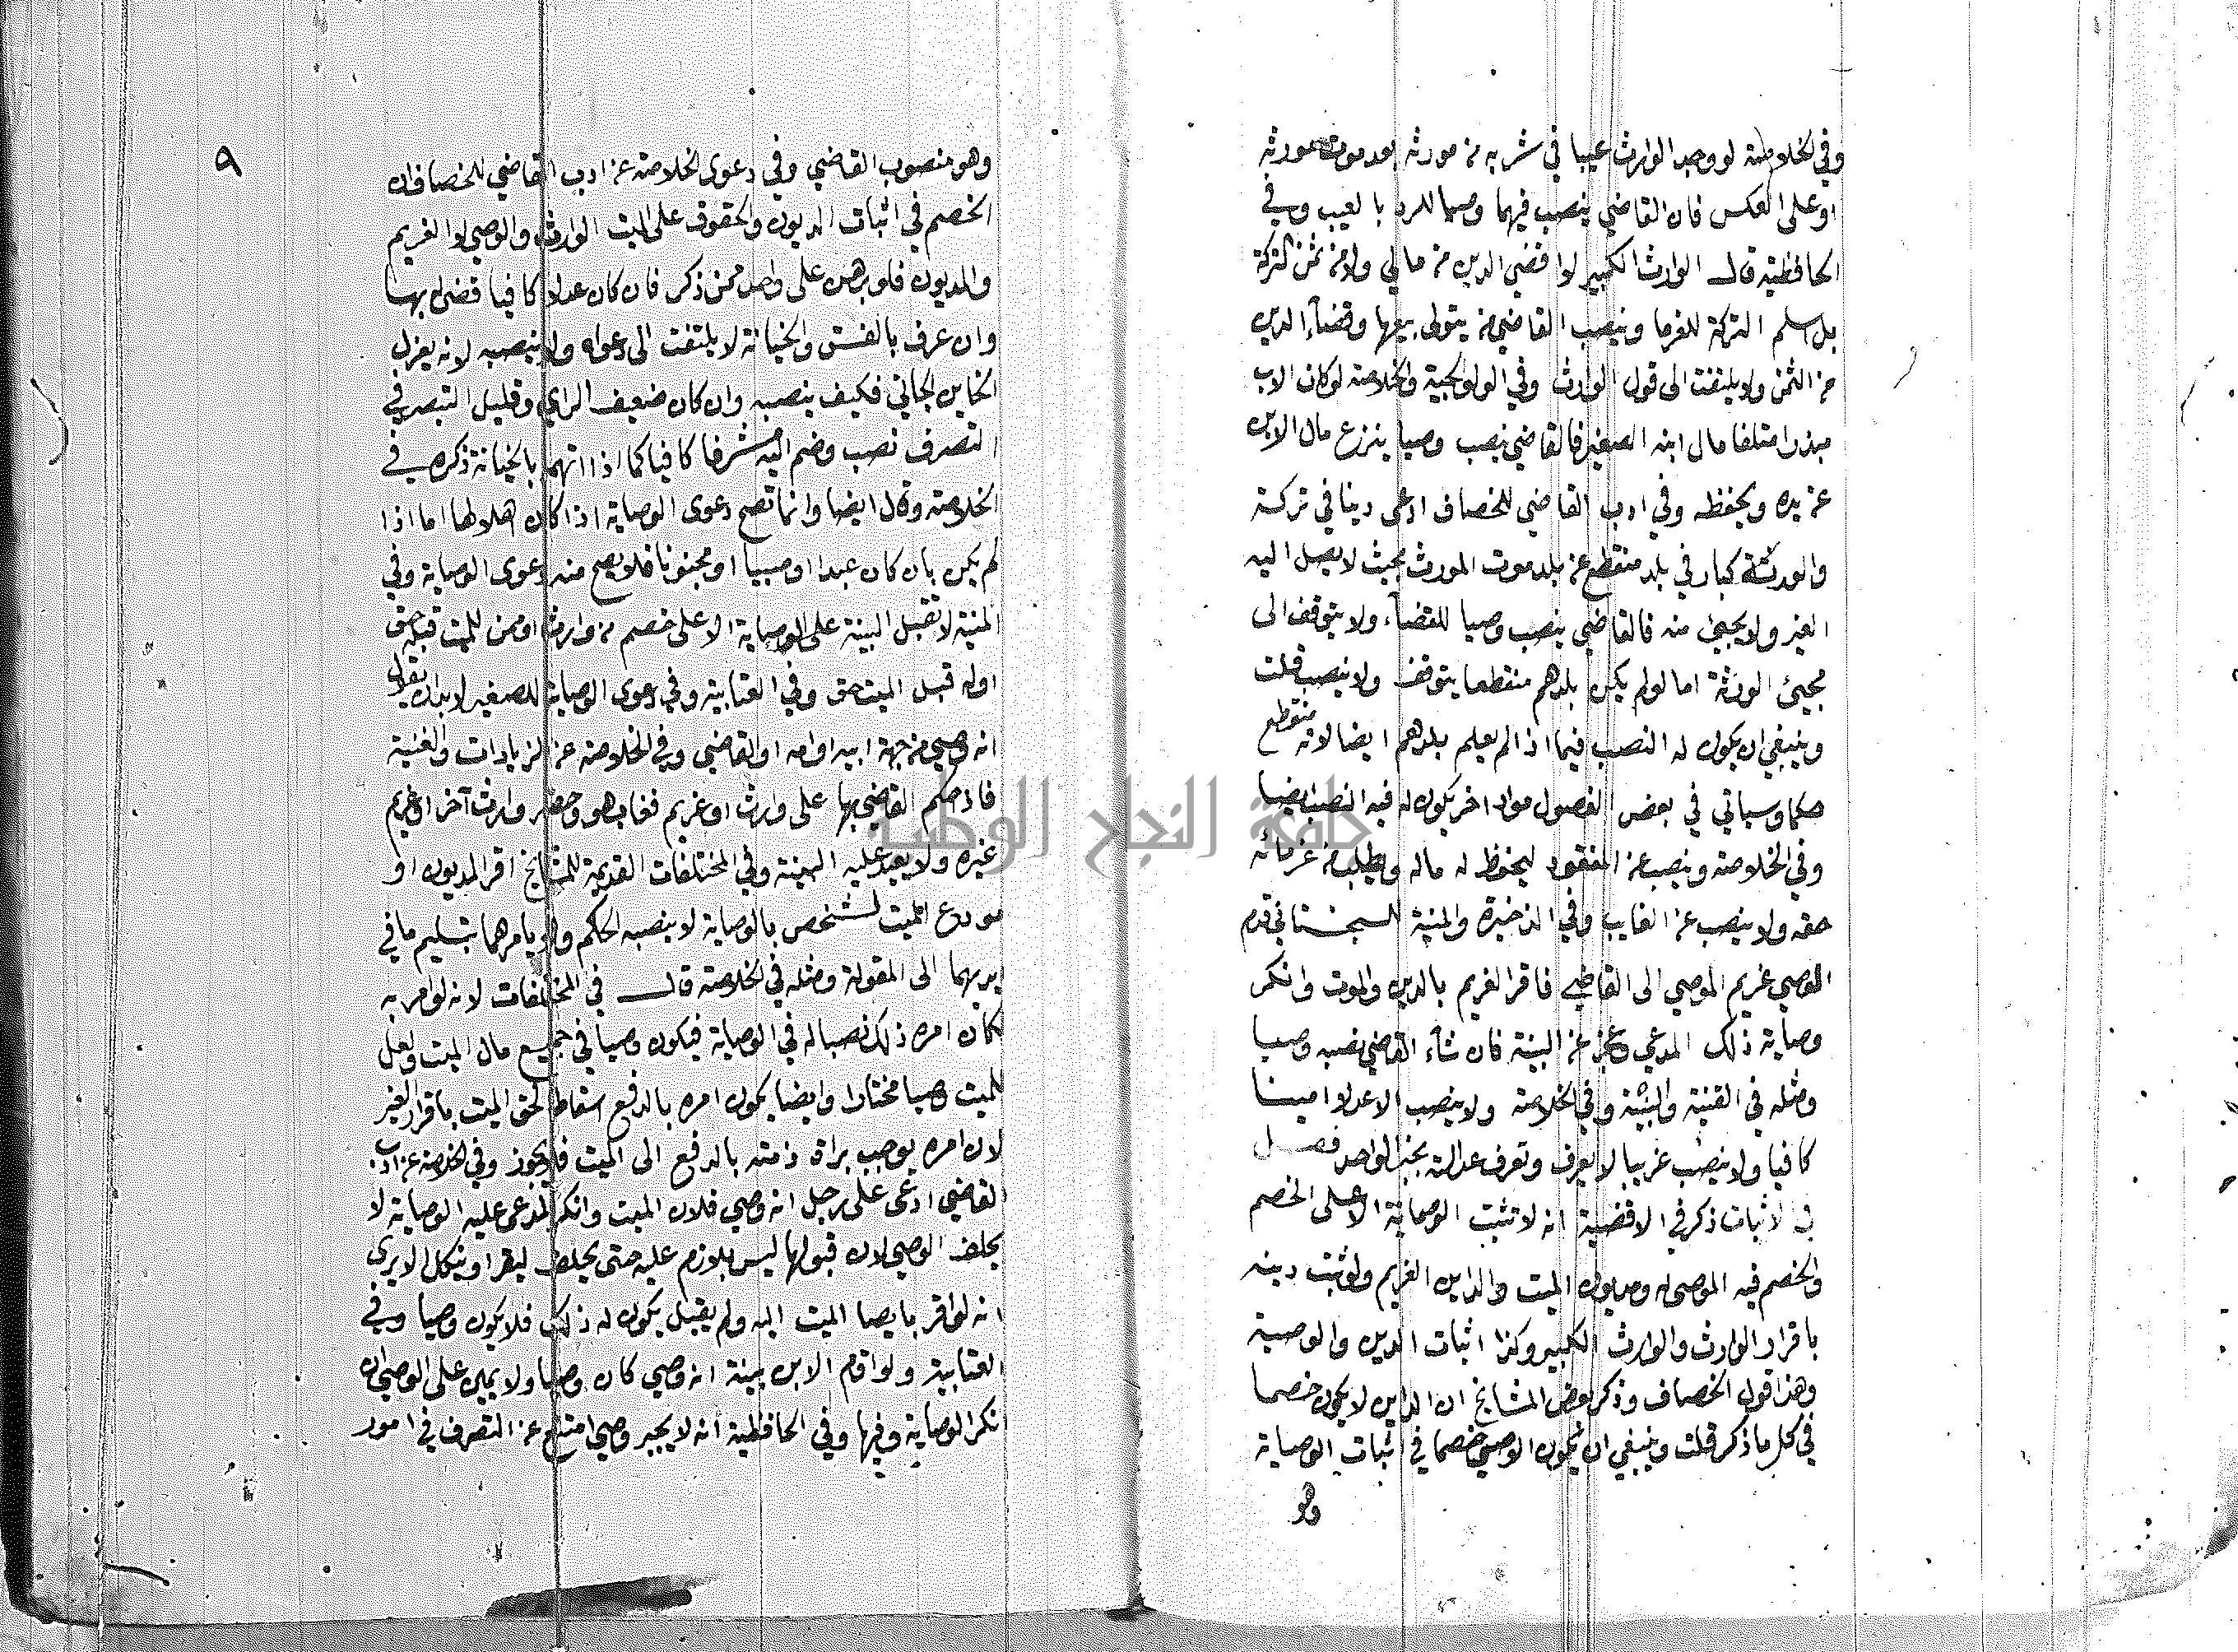 وفي الخلاصة لو وجد الوارث عيبا في شربه من مورثه بعد موت مورثه
او على العكس فان القاضي ينصب فيهما وصيا للرد بالعيب وفي
الحافظية قال الوارث الكبير لا اقضي الدين من مالي ولا من ثمن التركة
بل اسلم التركة للغرما وينصب القاضي من يتولى بيعها وقضاء الدين
من الثمن ولا يلتفت الى قول الوارث وفي الولوالجية والخلاصة لو كان الاب
مبذرا متلفا مال ابنه الصغير فالقاضي ينصب وصيا ينزع مال الابن
عن يده ويحفظه وفي ادب القاضي للخصاف ادعى دينا في تركة
والورثة كبار في بلد منقطع عن بلد موت المورث بحيث لا يصل اليه
العير ولا يجيئ منه فالقاضي ينصب وصيا للقضاء ولا يتوقف الى
مجيئ الورثة اما لو لم يكن بلدهم منقطعا يتوقف ولا ينصب قلت
وينبغي ان يكون له النصب فيما اذا لم يعلم بلدهم ايضا لانه منقطع
حكما وسياتي في بعض الفصول مواد اخر يكون له فيه النصب ايضا
وفي الخلاصة وينصب عن المفقود ليحفظ له ماله ويطلب من غرمائه
حقه ولا ينصب عن الغايب وفي الذخيرة والمنية للسجستاني قدم
الوصي غريم الموصي الى القاضي فاقر الغريم بالدين والموت وانكر
وصاية ذلك المدعي وعجز عن البينة فان شاء القاضي نصبه وصيا
ومثله في القنية والبينة وفي الخلاصة ولا ينصب الا عدلا امينا
كافيا ولا ينصب غريبا لا يعرف وتعرف عدالته بخبر الواحد فصل
في الاثبات ذكر في الاقضية انه لا تثبت الوصاية الا على الخصم
والخصم فيه الموصى له ومديون الميت والداين الغريم ولو ثبت دينه
باقرار الوارث والوارث الكبير وكذا اثبات الدين والوصية
وهذا قول الخصاف وذكر بعض المشايخ ان الداين لا يكون خصما
في كل ما ذكر قلت وينبغي ان يكون الوصي خصما في اثبات الوصاية
وهو
٩
وهو منصوب القاضي وفي دعوى الخلاصة عن ادب القاضي للخصاف ان
الخصم في اثبات الديون والحقوق على الميت الوارث والوصي لا الغريم
والمديون فلو برهن على واحد ممن ذكر فان كان عدلا كافيا قضى بها
وان عرف بالفسق والخيانة لا يلتفت الى دعواه ولا ينصبه لانه يعزل
الخاين الجاني فكيف ينصبه وان كان ضعيف الراي وقليل التبصر في
التصرف نصب وضم اليه مشرفا كافيا كما اذا اتهما بالخيانة ذكره في
الخلاصة وقال ايضا وانما تصح دعوى الوصاية اذا كان اهلا لها اما اذا
لم يكن بان كان عبدا او صبيا او مجنونا فلا يصح منه دعوى الوصاية وفي
المنية لا تقبل البينة على الوصاية الا على خصم من وارث او ممن للميت قبله حق
او له قبل الميت حق وفي العتابية وفي دعوى الوصاية للصغير لا بد ان يقول
انه وصي من جهة ابيه او امه او القاضي وفي الخلاصة عن الزيادات والغنية
فاذا حكم القاضي بها على وارث او غريم فغاب هو وحضر وارث آخر او غريم
غيره ولا يعيد عليه البينة وفي المختلفات القديمة للمشايخ اقر المديون او
مودع الميت لشخص بالوصاية لا ينصبه الحاكم ولا يامرهما بتسليم ما في
يديهما الى المقر له ومثله في الخلاصة قال في المختلفات لانه لو امر به
لكان امره ذلك نصبا له في الوصاية فيكون وصيا في جميع مال الميت ولعل
للميت وصيا مختارا وايضا يكون امره بالدفع اسقاطا لحق الميت باقرار الغير
لان امره يوجب براة ذمته بالدفع الى الميت فلا يجوز وفي الخلاصة عن ادب
القاضي ادعى على رجل انه وصي فلان الميت وانكر المدعى عليه الوصاية لا
يحلف الوصي لان قبولها ليس بلازم عليه حتى يحلف ليقر او ينكل الا يرى
انه لو اقر بايصا الميت اليه ولم يقبل يكون له ذلك فلا يكون وصيا وفي
العتابية ولو اقام الابن بينة انه وصي كان وصيا ولا يمين على الوصي ان
انكر الوصاية وفيها وفي الحافظية انه لا يجبر وصي امتنع عن التصرف في امور
جامعة النجاح الوطنية